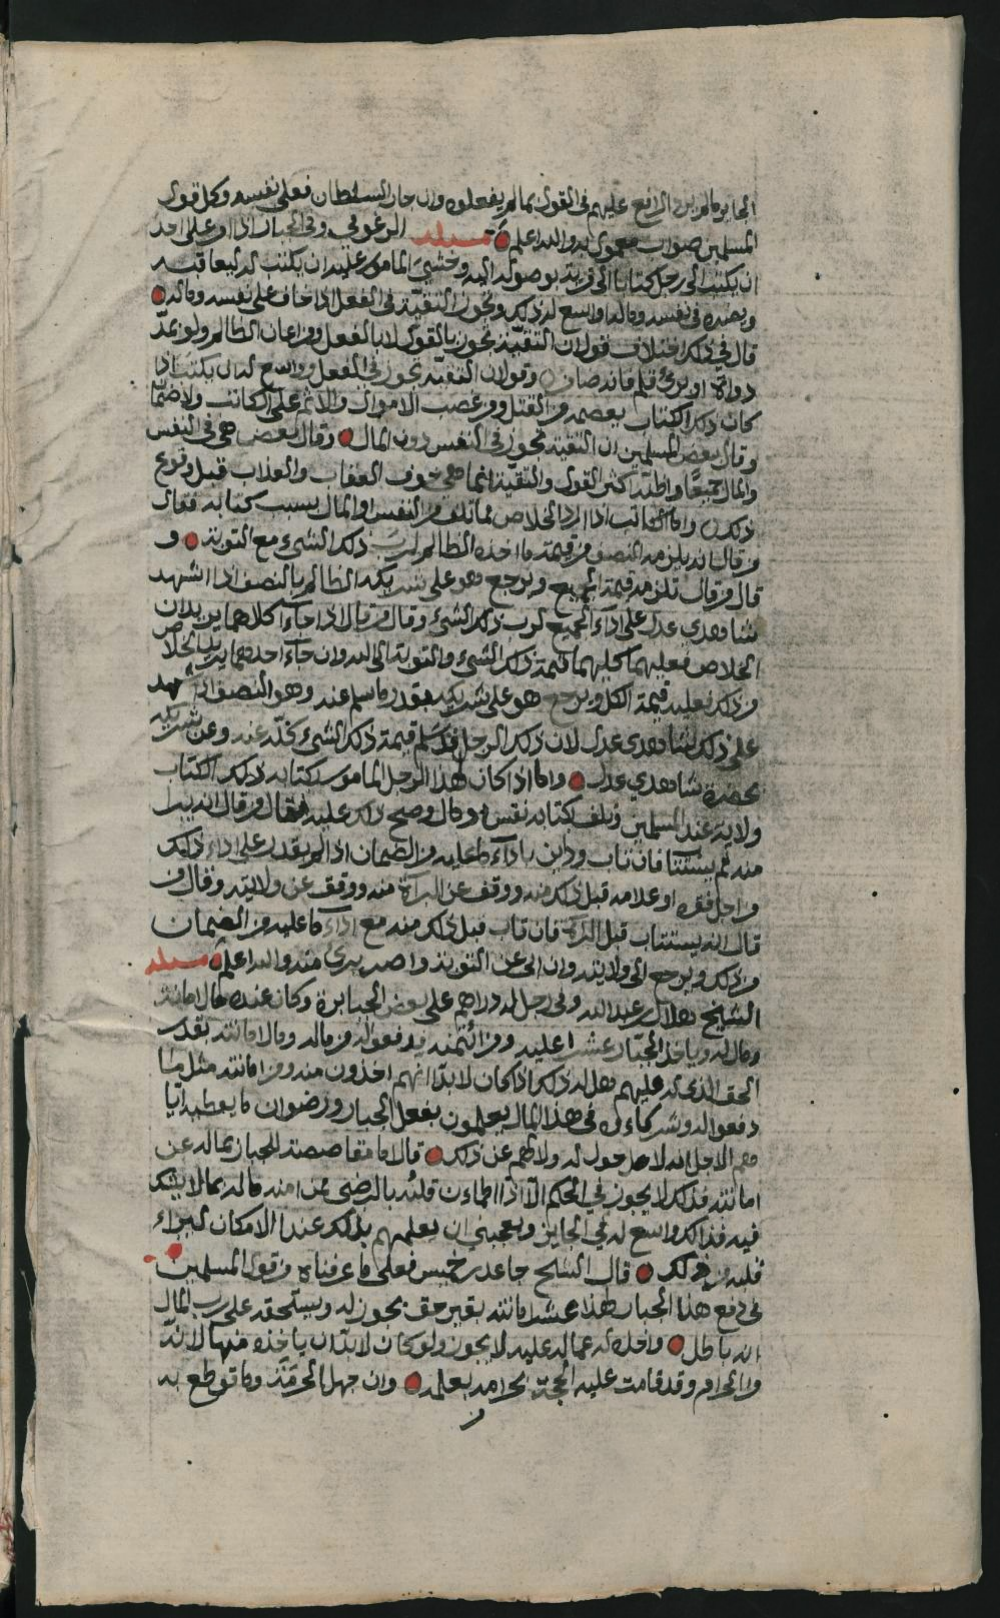 الجابر ما لم يزد الرافع عليهم في القول بما لم يفعلوه وان جار السلطان فعلى نفسه وكل قول
المسلمين صواب معمول به والله اعلم مسئله الزغوفي وفي الجبار اذا امر على احد
ان يكتب الى رجل كتابا الى قرية بوصوله اليه وخشي المامور عليه ان يكتب له ليعاقبه
ويضره في نفسه وماله واسع له ذلك وتجوز التقية في الفعل اذا خاف على نفسه وماله
قال في ذلك اختلاف قول ان التقية تجوز بالقول لا بالفعل ومن اعان الظالم ولو بمدّ
دواة او بري قلم فانه ضامن وقول ان التقية تجوز في الفعل وواسع له ان يكتب اذا
كان ذلك الكتاب بعصمه من القتل ومن غصب الاموال والاثم على الكاتب ولا ضمان
وقال بعض المسلمين ان التقية تجوز في النفس دون المال وقال بعض هي في النفس
والمال جميعا واظنه اكثر القول والتقية انما هي خوف العقاب والعذاب قبل وقوع
ذلك واما الكاتب اذا اراد الخلاص مما تلف من النفس او المال بسبب كتابه فقال
من قال انه يلزمه النصف من قيمة ما اخذه الظالم لرب ذلك الشيء مع التوبة و
قال من قال تلزمه قيمة الجميع ويرجع هو على شريكه الظالم بالنصف اذا اشهد
شاهدي عدل على اداء الجميع لرب ذلك الشيء وقال من قال اذا جاءا كلاهما يريدان
الخلاص فعليهما كليهما قيمة ذلك الشيء والتوبة الى الله وان جاء احدهما يريد الخلاص
من ذلك فعليه قيمة الكل ويرجع هو على شريكه بقدر ما سلم عنه وهو النصف اذا اشهد
على ذلك شاهدي عدل لان ذلك الرجل قد سلم قيمة ذلك الشيء كله عنه وعن شريكه
بحضرة شاهدي عدل واما اذا كان لهذا الرجل المامور بكتابه ذلك الكتاب
ولاية عند المسلمين وتلف بكتابه نفس ومال وصح ذلك عليه فقال من قال انه يبرا
منه ثم يستتاب فان تاب ودان باداء ما عليه من الضمان اذا لم يقدر على اداء ذلك
من اجل فقره او علامه قبل ذلك منه ووقف عن البرآة منه ووقف عن ولايته وقال من
قال انه يستتاب قبل البرآة فان تاب قبل ذلك منه مع اداء ما عليه من الضمان
من ذلك ويرجع الى ولايته وان ابى عن التوبة واصر برئ منه والله اعلم مسئله
الشيخ هلال بن عبدالله وفي رجل له دراهم على بعض الجبابرة وكان عنده مال امانة
ومال له وياخذ الجبار عشرا عليه ومن ائتمنه يدفعوا له من ماله ومال امانته بقدر
الحق الذي له عليهم هل له ذلك اذا كان لا بد انهم اخذون منه ومن امانته مثل ما
دفعوا له وشركاءه في هذا المال يعلمون بفعل الجبار ورضوان ما يعطيه ايا
هم الاجل انه لا حول له ولا لهم عن ذلك قال اما مقاصصته للجبار بماله عن
امانته فذلك لا يجوز في الحكم الا اذا اطماءن قلبه بالرضى ممن امنه ماله بما لا يشك
فيه فذالك واسع له في الجايز ويعجبني ان يعلمهم بذلك عند الامكان ليبراء
قلبه من ذلك قال الشيخ جاعد بن خميس فعلى ما عرفناه من قول المسلمين
في دفع هذا الجبار لهذا عشر امانته بغير حق يجوز له ويستحقه على رب المال
انه باطل واخذه له عماله عليه لا يجوز ولو كان لا بد ان ياخذه منها لانه
والحرام وقد قامت عليه الحجة بحرامه بعلمه وان جهل الحرمة وما توطع به